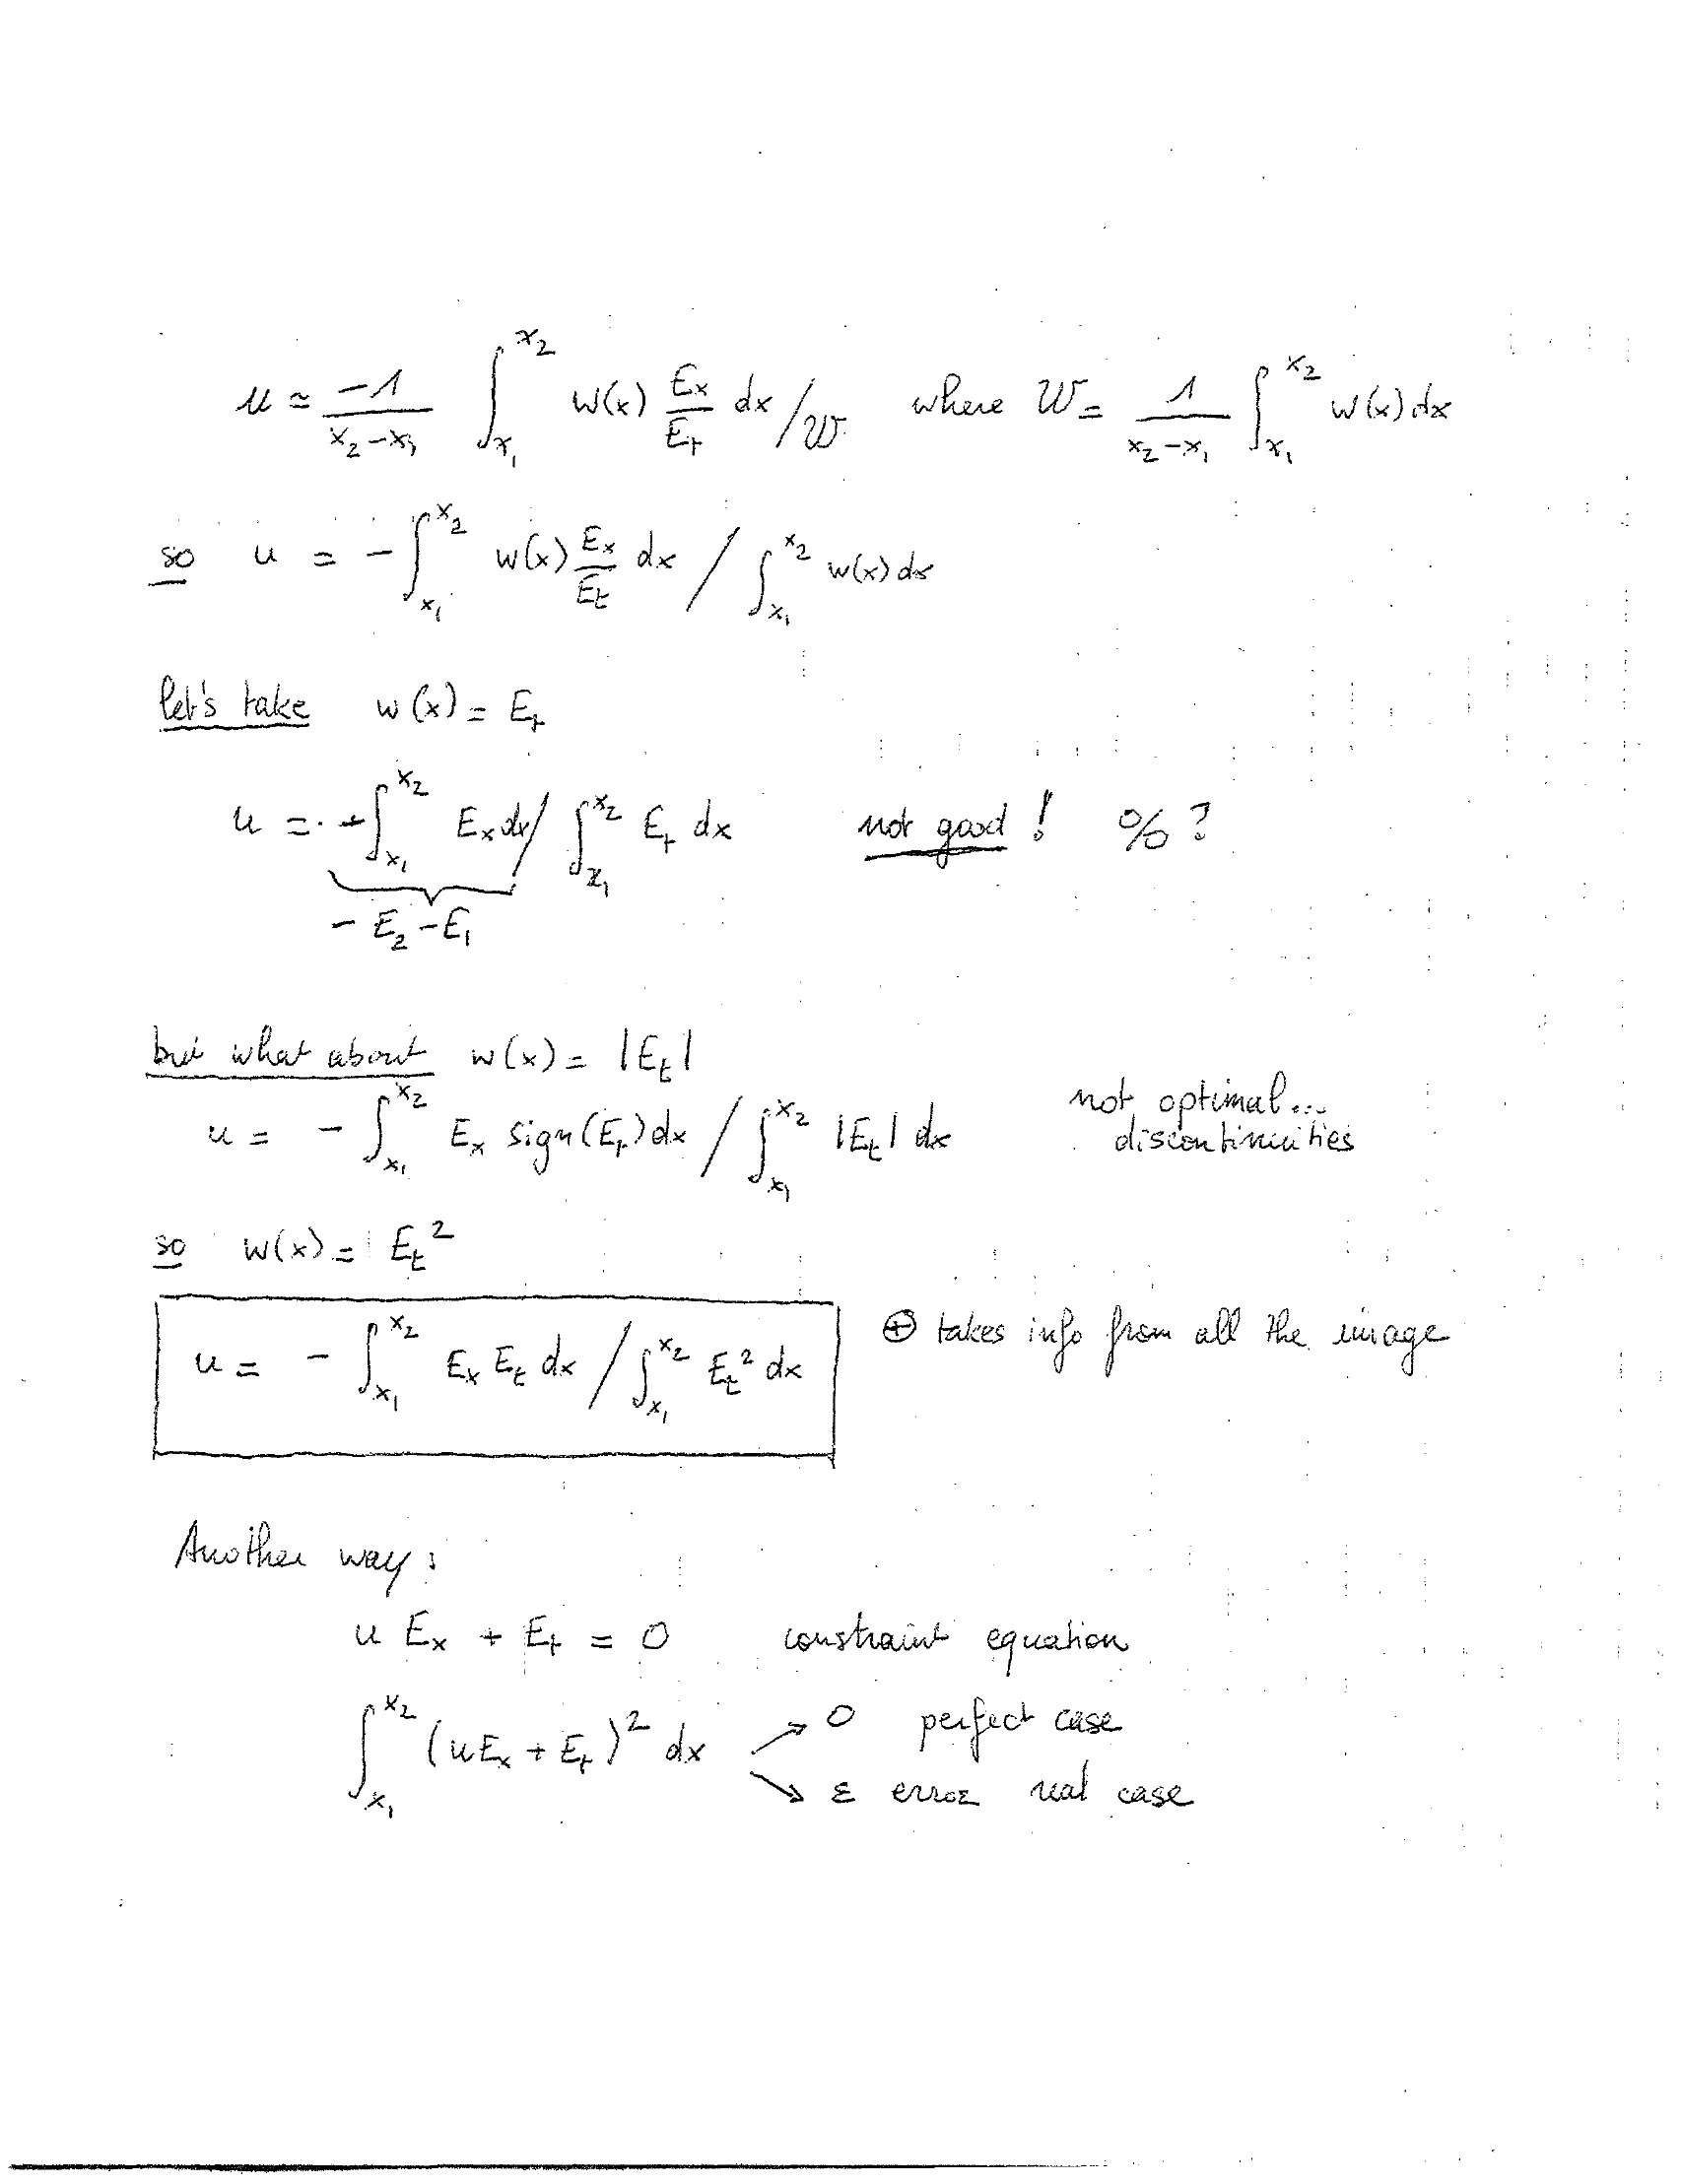 u ≃ -1/(x₂-x₁) ∫_{x₁}^{x₂} w(x) E_x/E_t dx / W where W = 1/(x₂-x₁) ∫_{x₁}^{x₂} w(x) dx
so u = - ∫_{x₁}^{x₂} w(x) E_x/E_t dx / ∫_{x₁}^{x₂} w(x) dx
let's take w(x) = E_t
u = - ∫_{x₁}^{x₂} E_x dx / ∫_{x₁}^{x₂} E_t dx not good! %?
- E₂ - E₁
but what about w(x) = |E_t|
u = - ∫_{x₁}^{x₂} E_x sign(E_t) dx / ∫_{x₁}^{x₂} |E_t| dx not optimal...
discontinuities
so w(x) = E_t²
u = - ∫_{x₁}^{x₂} E_x E_t dx / ∫_{x₁}^{x₂} E_t² dx ⊕ takes info from all the image
Another way:
u E_x + E_t = 0 constraint equation
∫_{x₁}^{x₂} (u E_x + E_t)² dx ↗ 0 perfect case
↘ ε error real case